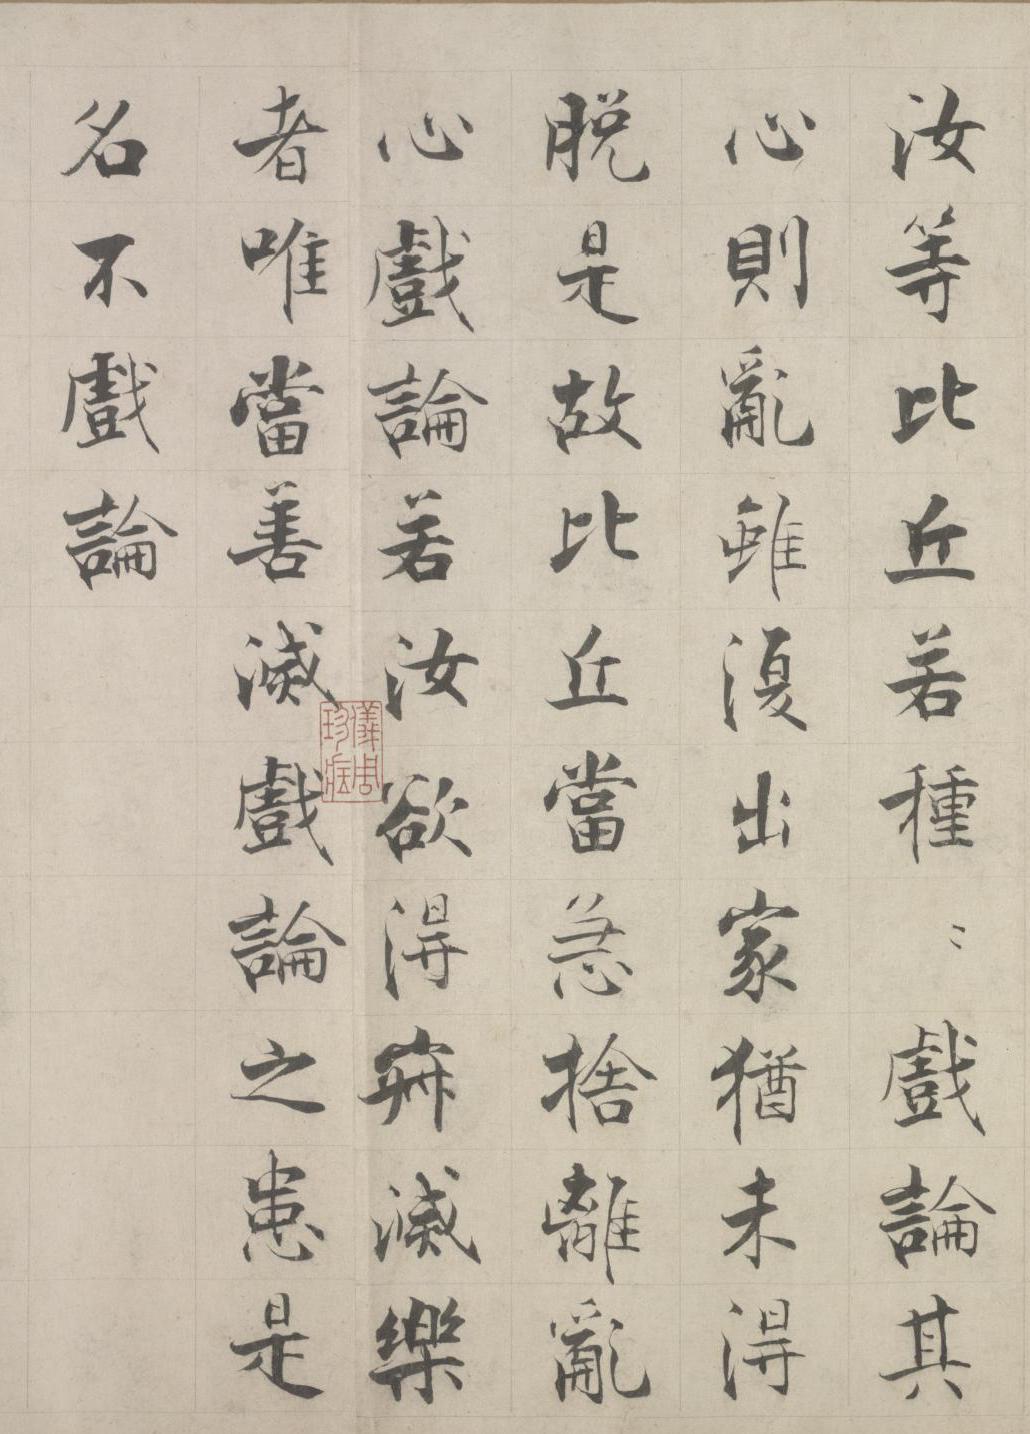 汝等比丘若種〻戲論其
心則亂雖復出家猶未得
脱是故比丘當急捨離亂
心戲論若汝欲得寂滅樂
者唯當善滅戲論之患是
名不戲論
儀周珍藏